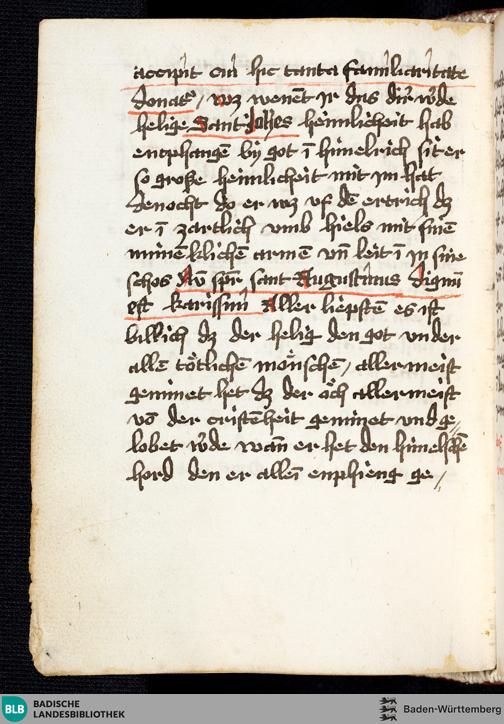 accipit cui hic tanta familiaritate
donat᷒ / wz wenent ir das dir wͤde
helige Sant Johs heimlicheit hab
entphangē bÿ got ī himelrich sit er
so große heimlicheit mit im hat
denocht do er wz vf dē ertrich dz
er ī zartlich vmb hiels mit sinē
minēklichē armē vn̄ leit ī in sine
schos Au᷒ spr̄ sant Augustinus Dignū
est karissimi Aller liepsten es ist
billich dz der helig den got vnder
allē toͤtlichē moͤnschē / allermeist
geminet het dz der oͮch allermeist
vō der cristēheit geminet vnd ge⸗
lobet wͤde wan̄ er het den himelschē
hord den er alleī enphieng ge /
BLB
BADISCHE
LANDESBIBLIOTHEK
Baden-Württemberg